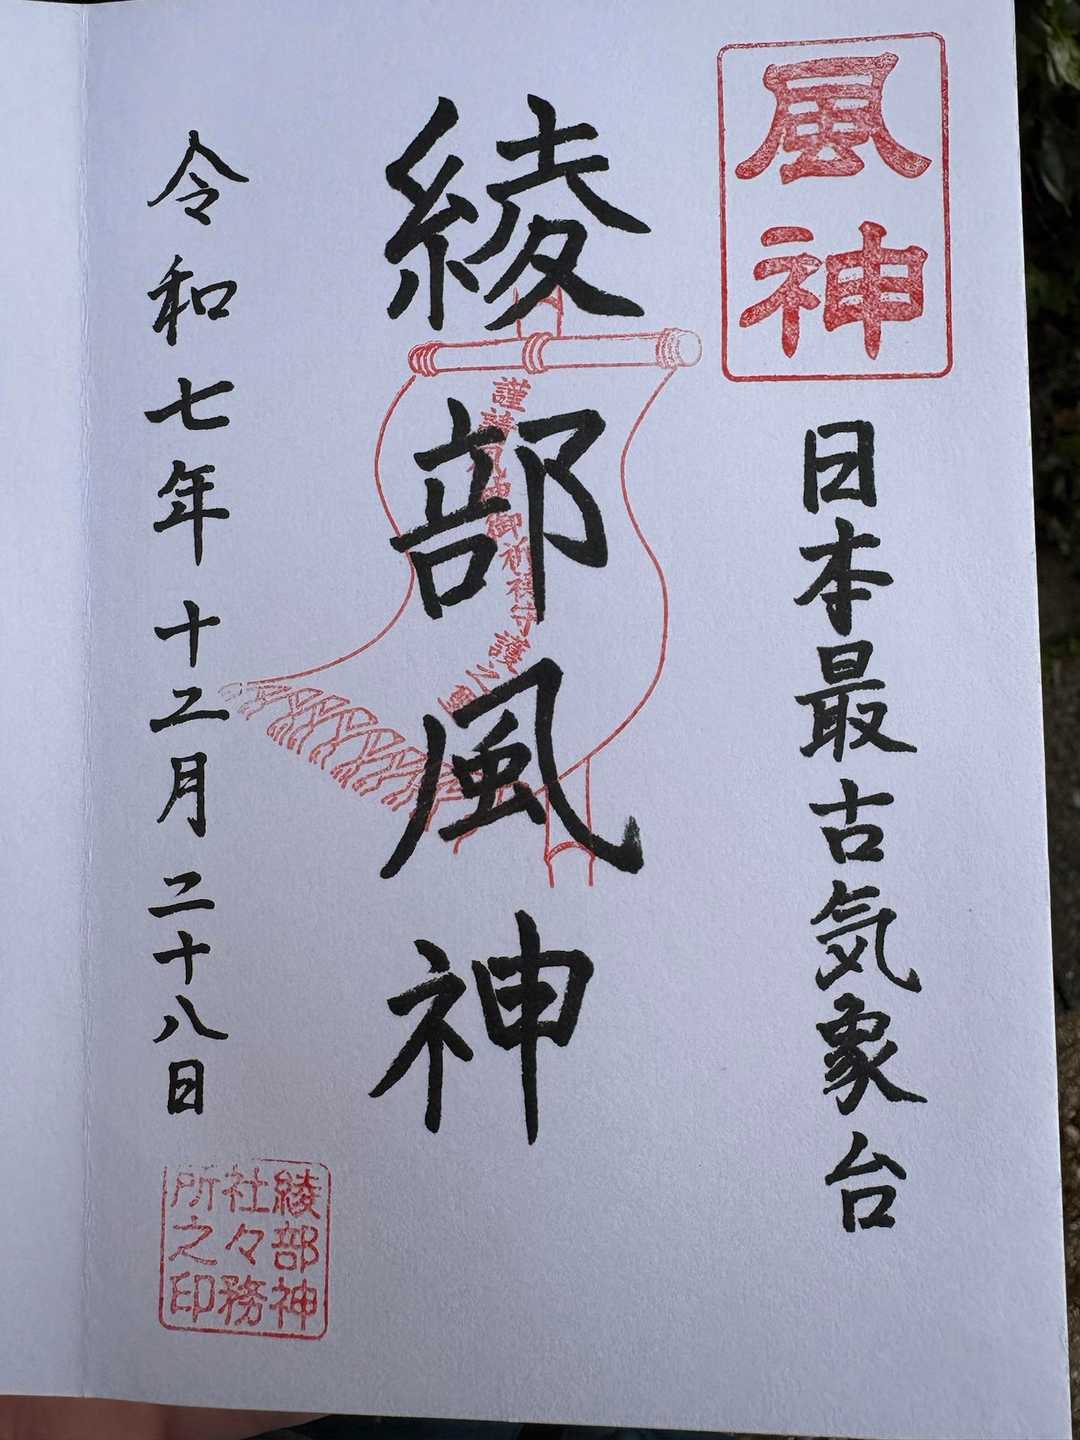 風神
日本最古気象台
綾部風神
謹請風神御祈祷守護之
令和七年十二月二十八日
綾部神
社々務
所之印